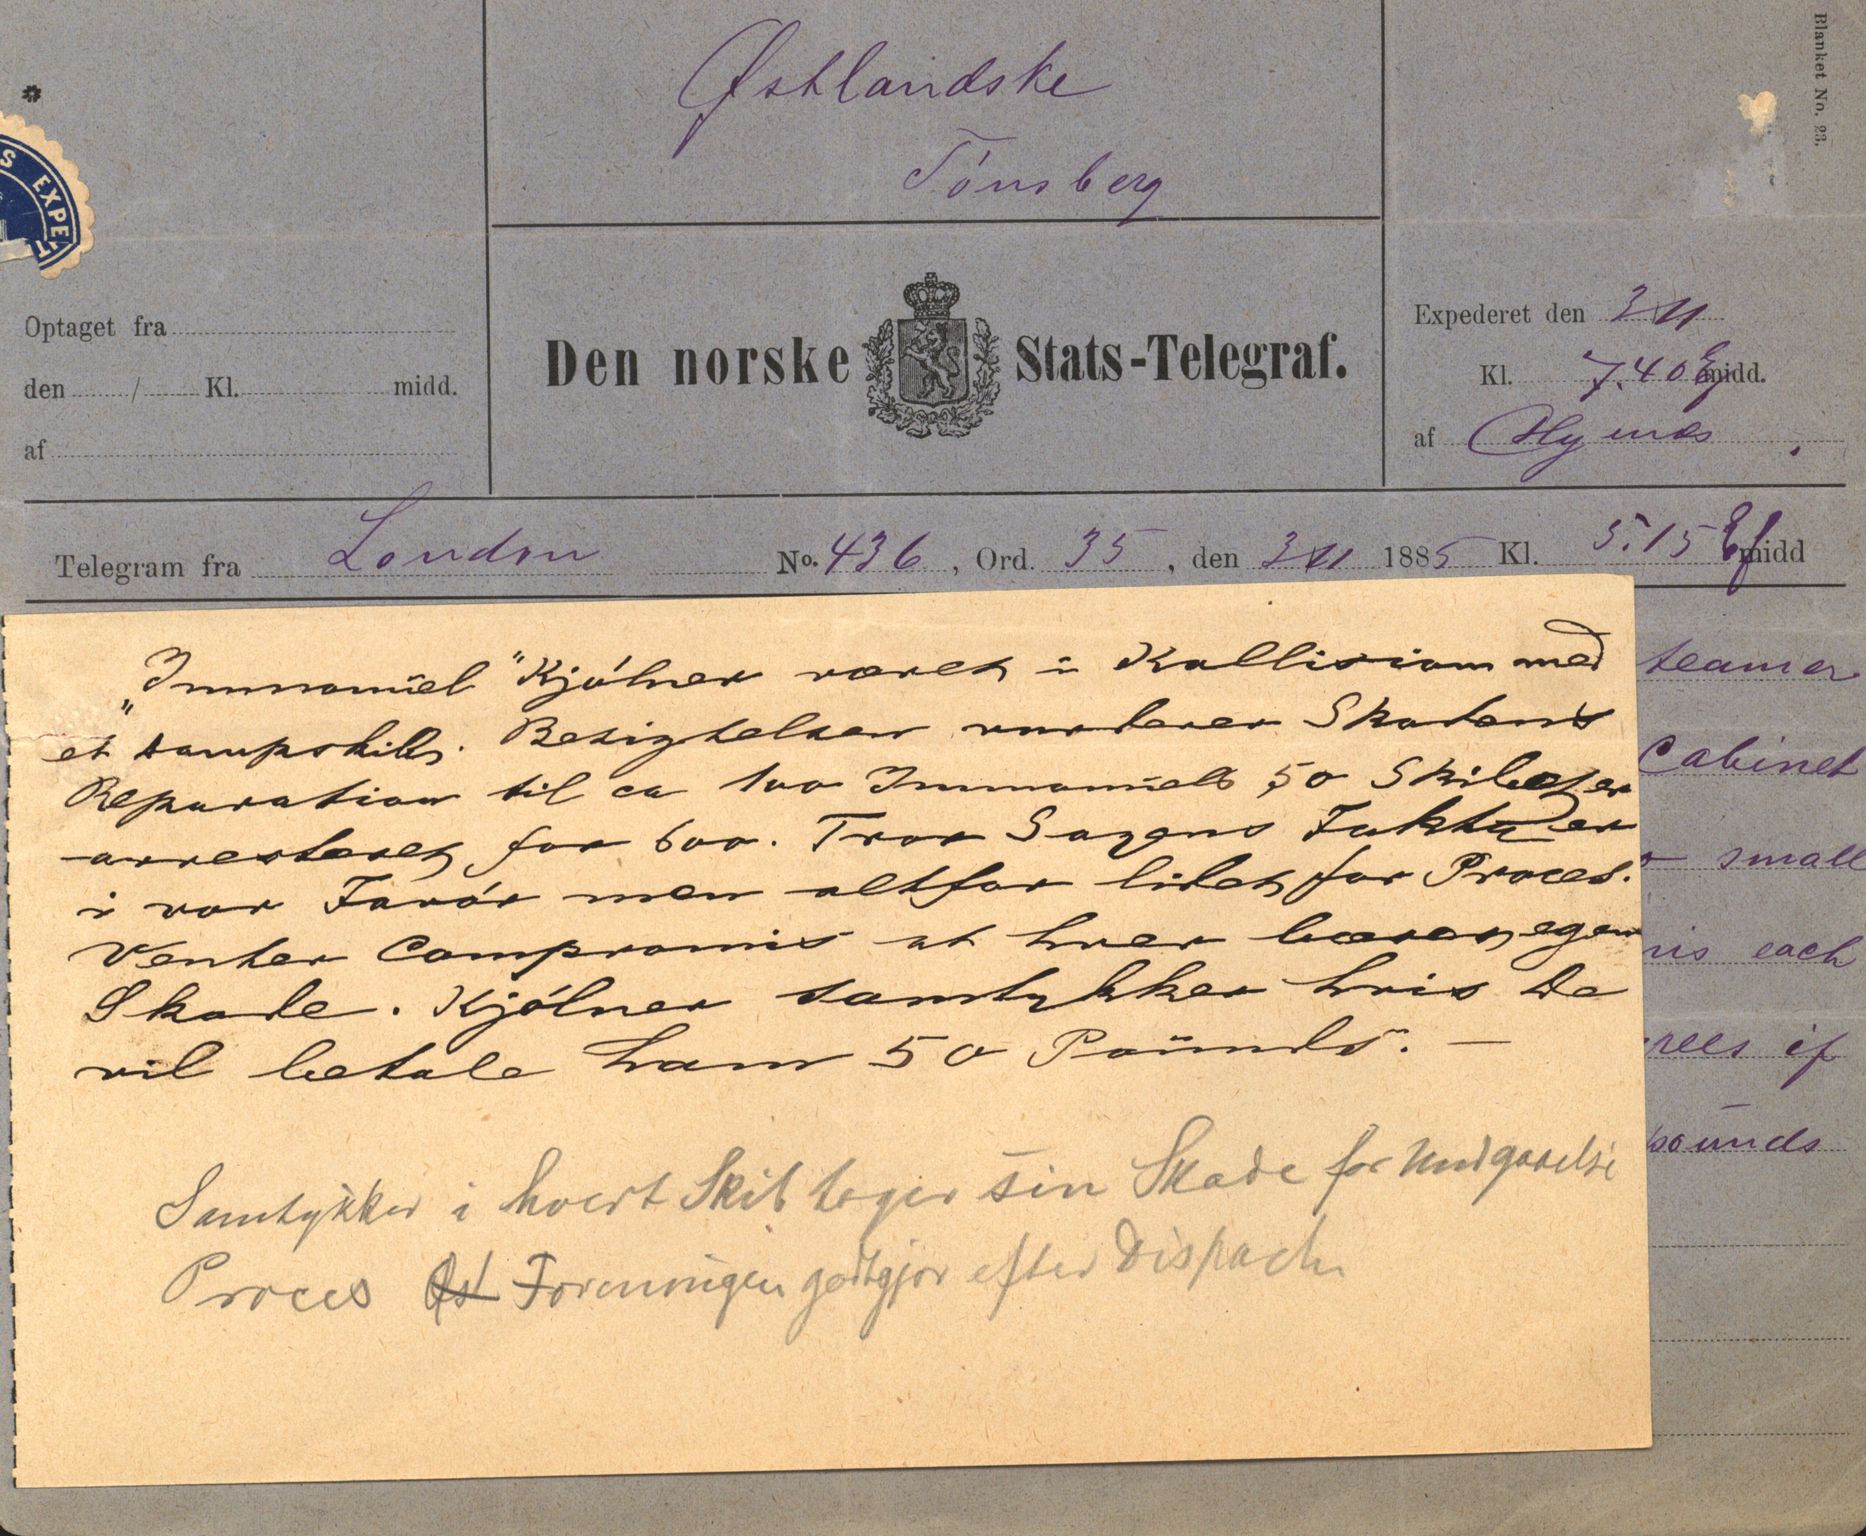 Blanket No. 23.
Østlandske
Tönsberg
S EXPE
Optaget fra
den / Kl. midd.
af
Den norske Stats-Telegraf.
Expederet den 3/11
Kl. 7.40 E midd.
af
Telegram fra London No. 436, Ord. 35, den 3/11 1885 Kl. 5.15 Ef midd
„Immanuel" Kjölner været i Kollision med
et Dampskib. Besigtelsen vurderer Skadens
Reparation til ca 100 Immanuels 50 Skibet er
arresteret for 600. Tror Sagens Fakta er
i vor Favör men altfor lidet for Proces.
Venter Compromis at hver bærer egen
Skade. Kjölner samtykker hvis De
vil betale ham 50 Pounds. —
Samtykker i hvert Skib tager sin Skade for Undgaaelse
Proces Øst Foreningen godtgjør efter Dispache
teamer
Cabinet
small
is each
rees if
pounds